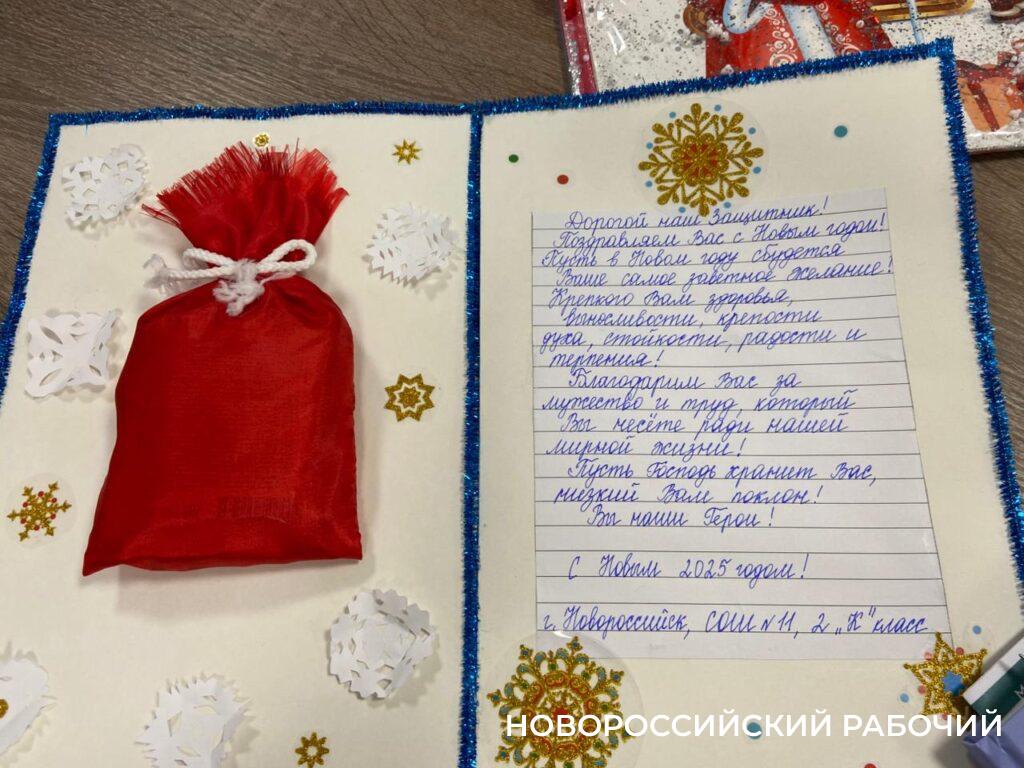 Дорогой наш Защитник!
Поздравляем Вас с Новым годом!
Пусть в Новом году сбудется
Ваше самое заветное желание!
Крепкого Вам здоровья,
выносливости, крепости
духа, стойкости, радости и
терпения!
Благодарим Вас за
мужество и труд, который
Вы несёте ради нашей
мирной жизни!
Пусть Господь хранит Вас,
низкий Вам поклон!
Вы наши Герои!
С Новым 2025 годом!
г. Новороссийск, СОШ №11, 2 „К" класс
НОВОРОССИЙСКИЙ РАБОЧИЙ